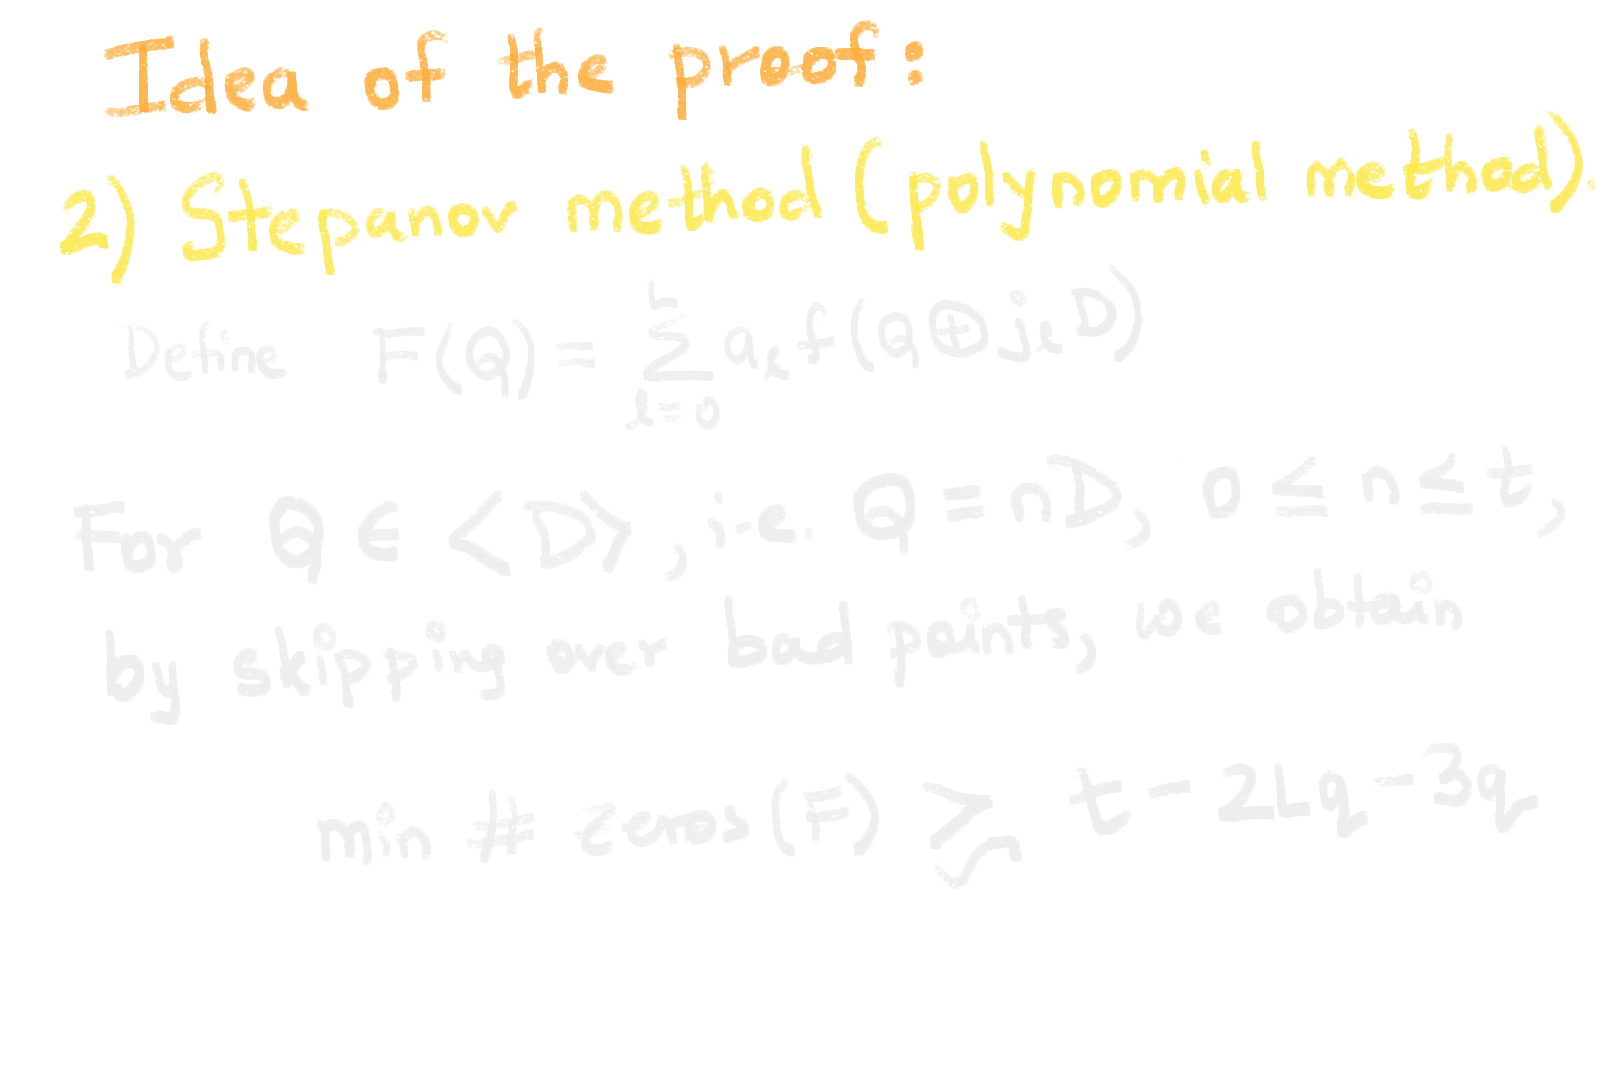 Idea of the proof:
2) Stepanov method (polynomial method).
Define F(Q) = \sum_{l=0}^{h} a_l f(Q ⊕ j_l D)
For Q ∈ <D>, i.e. Q = nD, 0 ≤ n ≤ t,
by skipping over bad points, we obtain
min # zeros(F) ≥ t - 2Lq - 3q